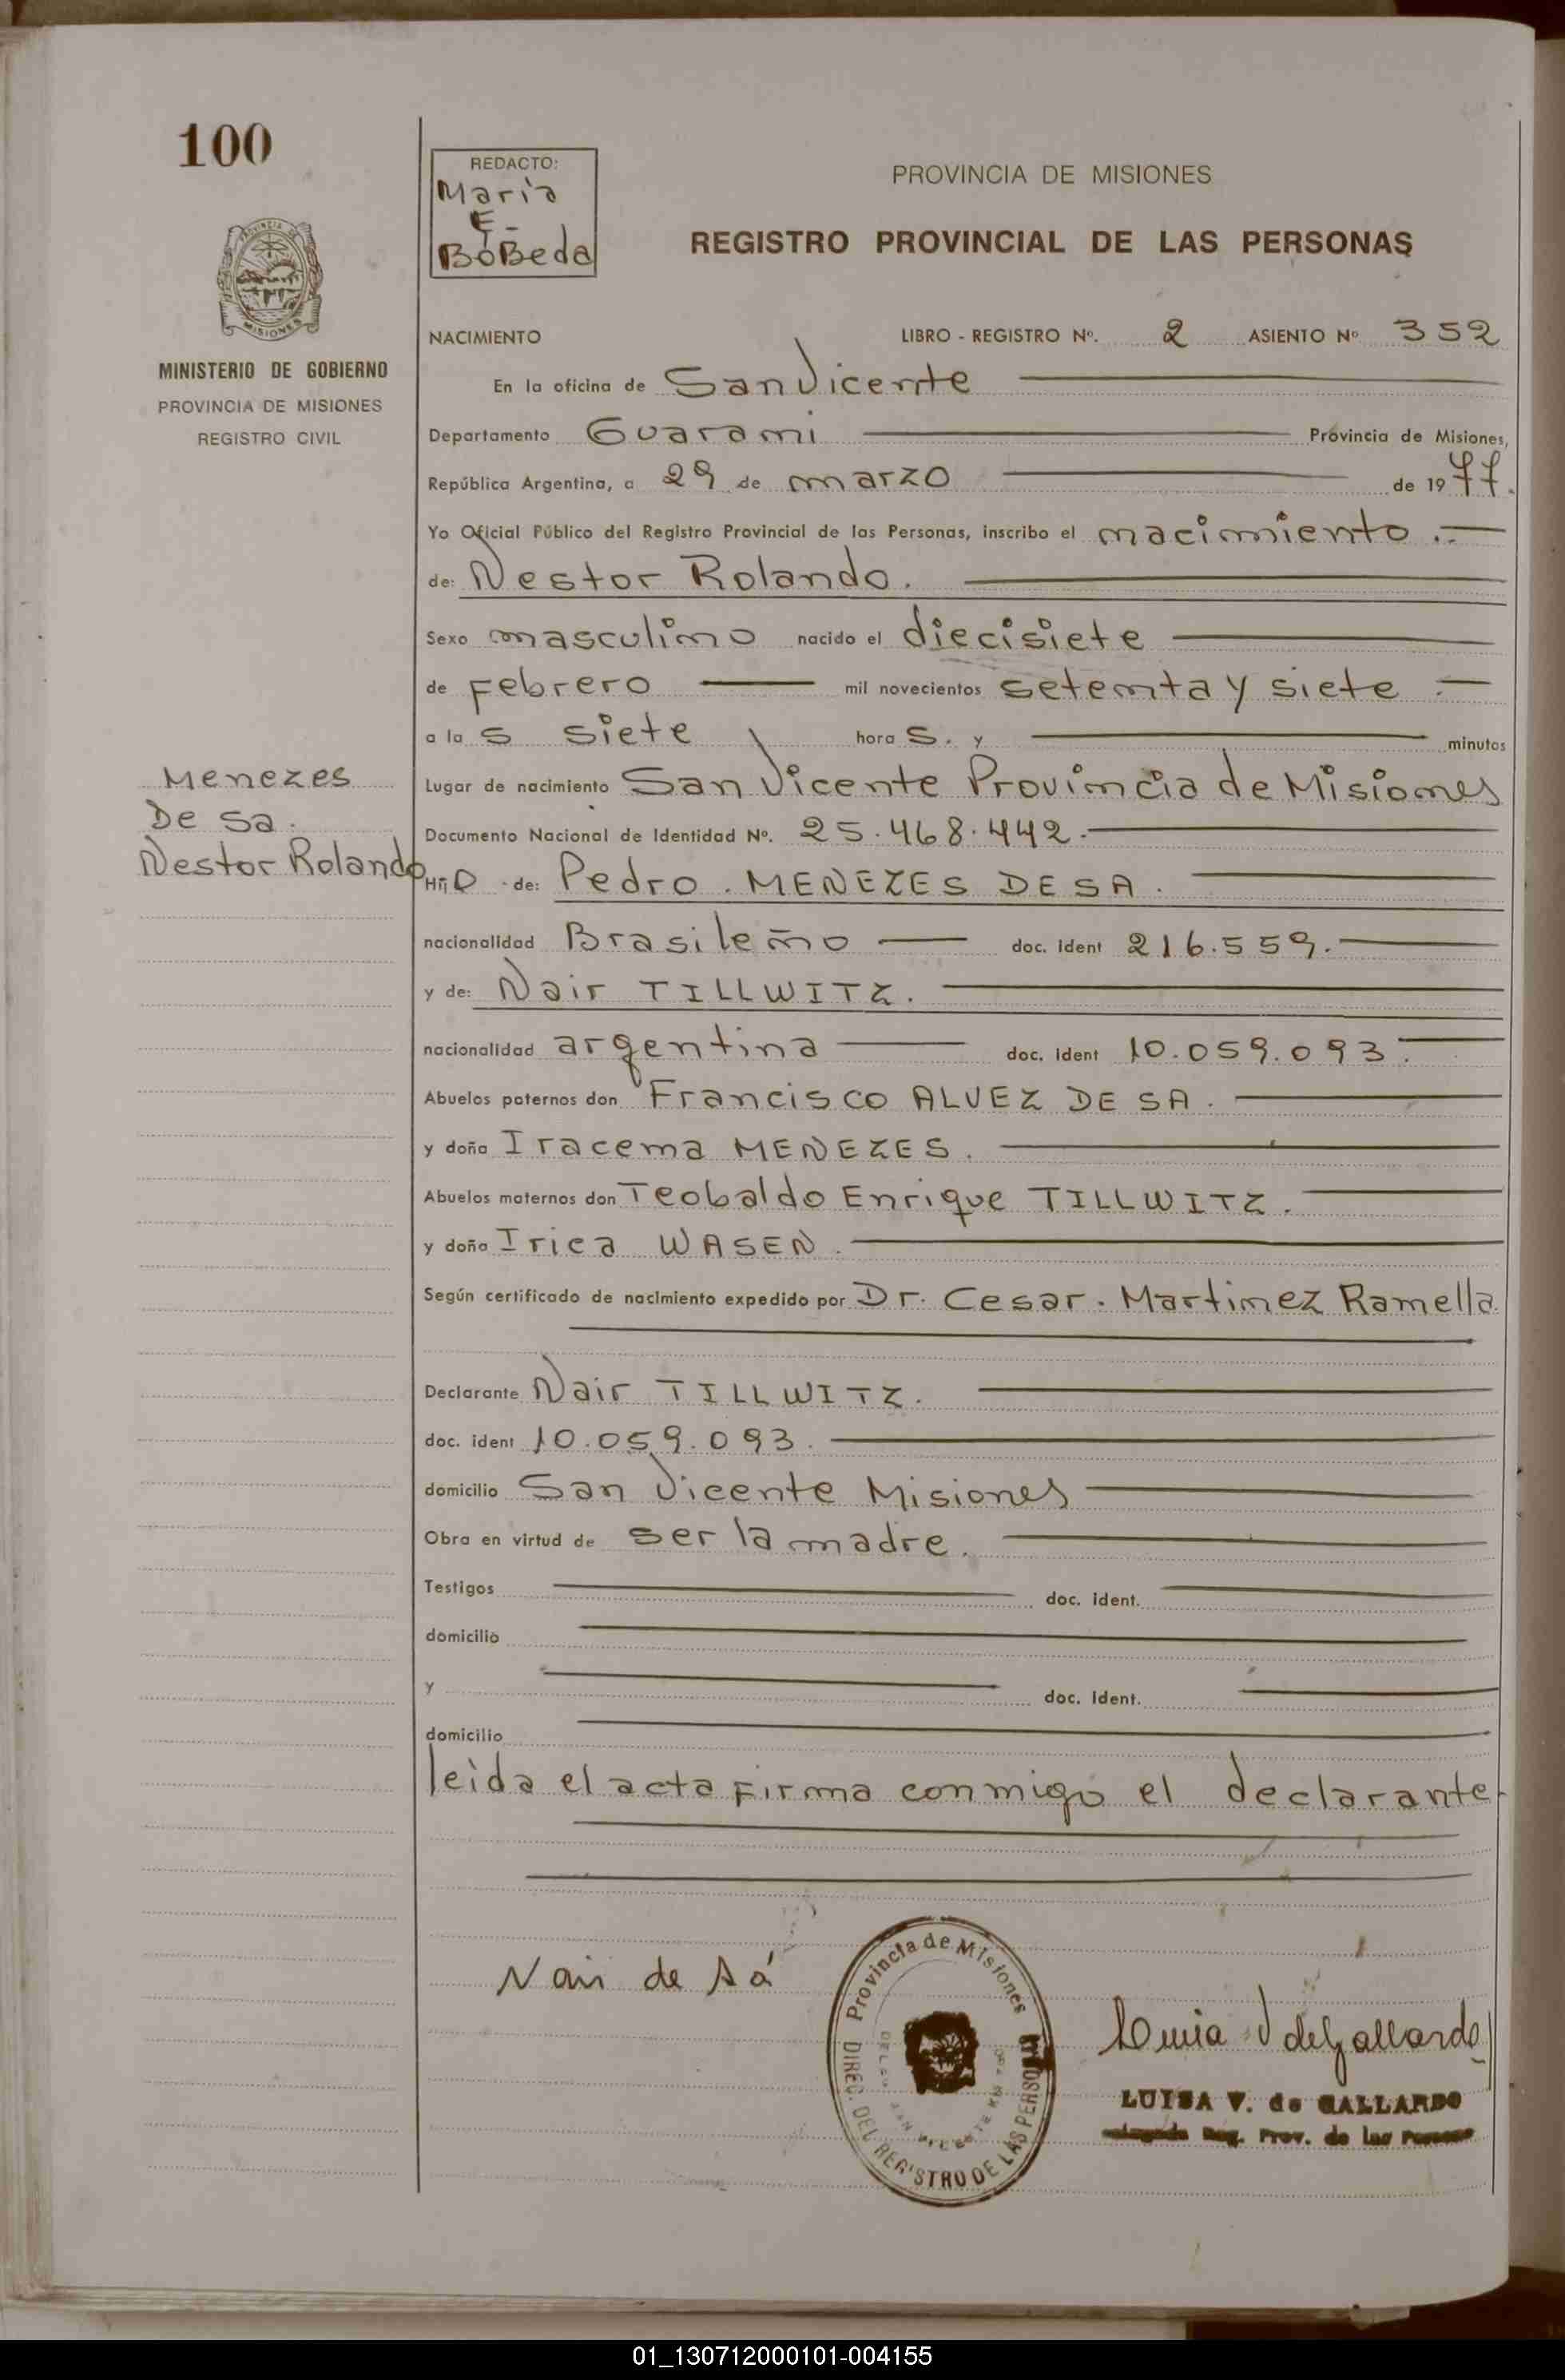 100
REDACTO:
Maria
E-
BóBeda
PROVINCIA DE MISIONES
REGISTRO PROVINCIAL DE LAS PERSONAS
PROVINCIA DE
MISIONES
MINISTERIO DE GOBIERNO
PROVINCIA DE MISIONES
REGISTRO CIVIL
NACIMIENTO LIBRO - REGISTRO Nº. 2 ASIENTO Nº 352
En la oficina de San Vicente
Departamento Guarami Provincia de Misiones,
República Argentina, a 29 de marzo de 1977.
Yo Oficial Público del Registro Provincial de las Personas, inscribo el nacimiento.
de: Nestor Rolando.
Sexo masculino nacido el diecisiete
de Febrero mil novecientos setenta y siete
a las siete horas. y minutos
Lugar de nacimiento San Vicente Provincia de Misiones
Documento Nacional de Identidad Nº. 25.468.442.
Menezes
De Sa.
Nestor Rolando
Hijo de: Pedro. MENEZES DE SA.
nacionalidad Brasileño doc. ident 216.559.
y de: Nair TILLWITZ.
nacionalidad argentina doc. ident 10.059.093.
Abuelos paternos don Francisco ALVEZ DE SA.
y doña Iracema MENEZES.
Abuelos maternos don Teobaldo Enrique TILLWITZ.
y doña Irica WASEN.
Según certificado de nacimiento expedido por Dr. Cesar. Martinez Ramella.
Declarante Nair TILLWITZ.
doc. ident 10.059.093.
domicilio San Vicente Misiones
Obra en virtud de ser la madre.
Testigos doc. ident.
domicilio
y doc. Ident.
domicilio
leida el acta Firma conmigo el declarante
Nair de Sá
Provincia de Misiones
DIREC. DEL REGISTRO DE LAS PERSONAS
Luisa V de Gallardo
LUISA V. de GALLARDO
Reg. Prov. de las Personas
01_130712000101-004155